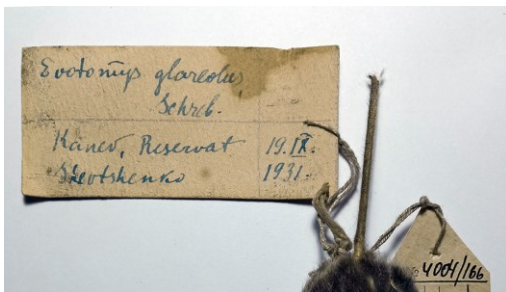 Evotomys glareolus,
Schreb.
Kanev, Reservat 19.IX.
Shevtshenko 1931.
№ 4004/166